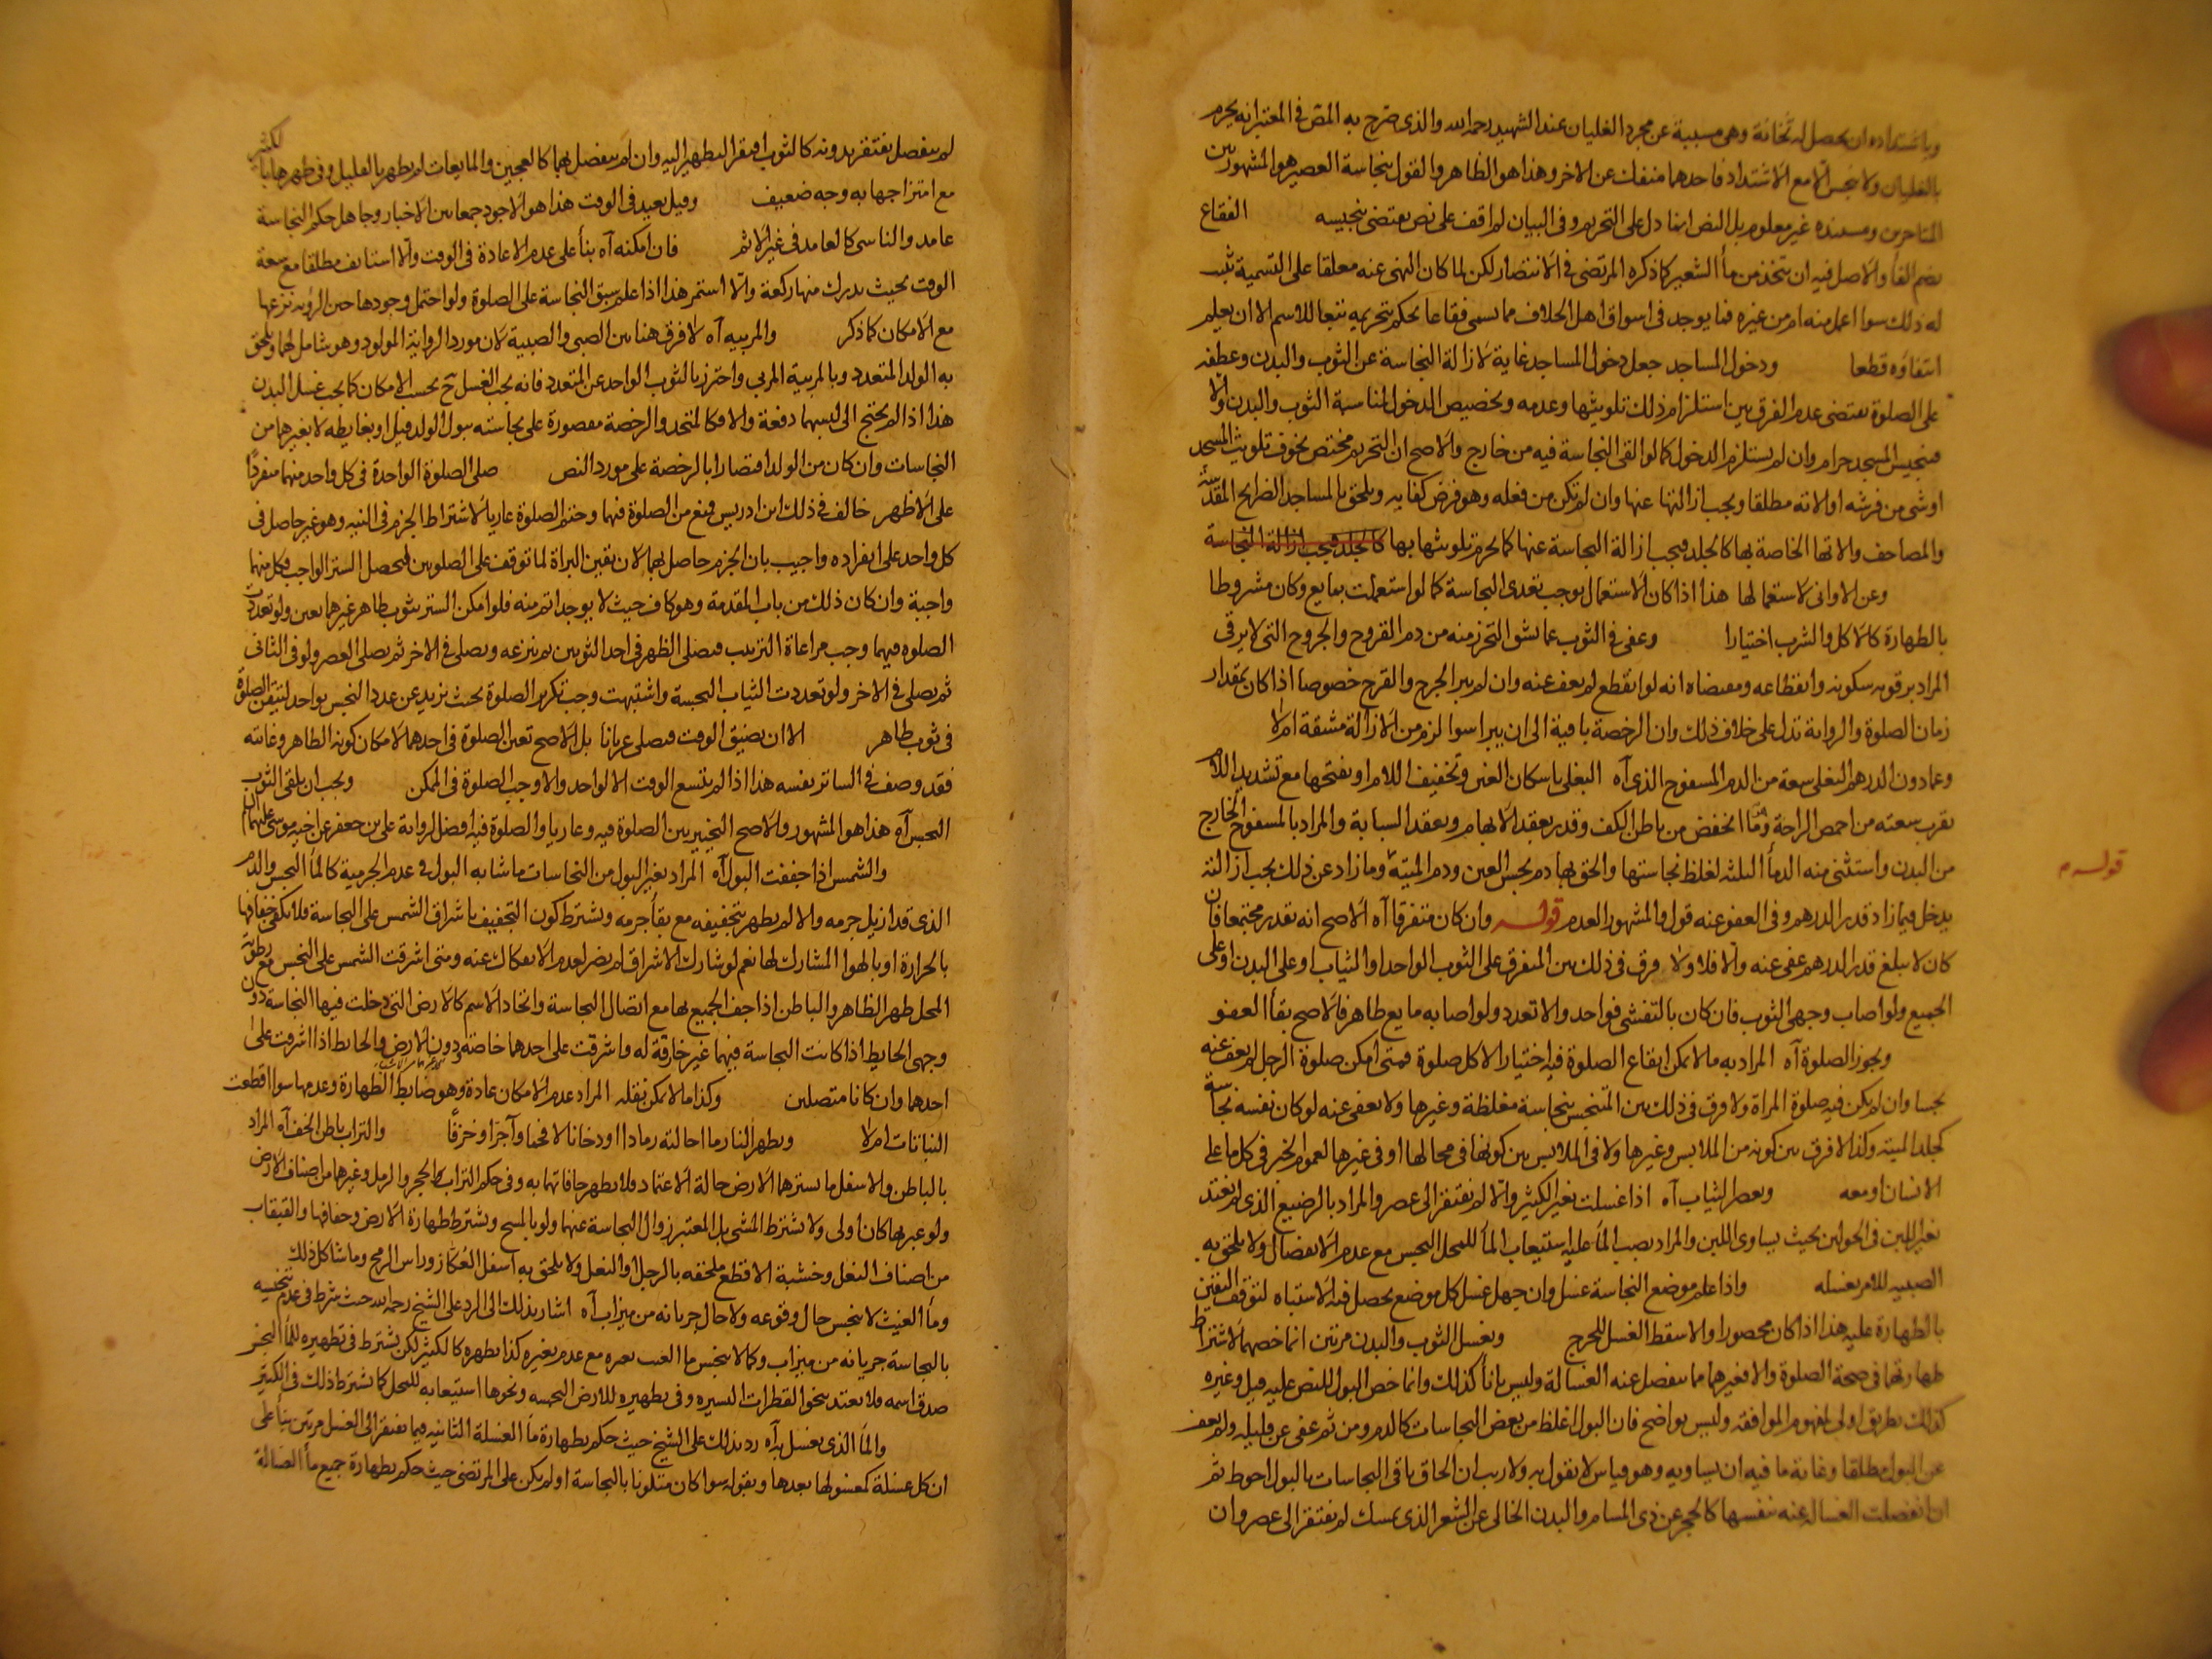 وباشتداده ان يحصل له ثخانة وهى مسببة عن مجرد الغليان عند الشهيد رحمه الله والذى صرح به المص فى المعتبر انه يحرم
بالغليان ولا ينجس الا مع الاشتداد فاحدهما منفك عن الاخر وهذا هو الظاهر والقول بنجاسة العصير هو المشهور بين
المتاخرين ومستنده غير معلوم بل النص انما دل على التحريم وفى البيان لم اقف على نص يقتضى تنجيسه الفقاع
بضم الفاء والاصل فيه ان يتخذ من ماء الشعير كما ذكره المرتضى فى الانتصار لكن لما كان النهى عنه معلقا على التسمية ثبت
له ذلك سواء عمل منه ام من غيره فما يوجد فى اسواق اهل الخلاف مما يسمى فقاعا يحكم بتحريمه تبعا للاسم الا ان يعلم
انتفاؤه قطعا ودخول المساجد جعل دخول المساجد غاية لازالة النجاسة عن الثوب والبدن وعطفه
على الصلوة يقتضى عدم الفرق بين استلزام ذلك تلويثها وعدمه وتخصيص الدخول لمناسبة الثوب والبدن والا
فتنجيس المسجد حرام وان لم يستلزم الدخول كما لو القى النجاسة فيه من خارج والاصح ان التحريم مختص بخوف تلويث المسجد
او شئ من فرشه او الاته مطلقا ويجب ازالتها عنها وان لم تكن من فعله وهو فرض كفاية ويلحق بالمساجد الضرايح المقدسة
والمصاحف والاتها الخاصة بها كالجلد فيجب ازالة النجاسة عنها كما يحرم تلويثها بها كالجلد فيجب ازالة النجاسة
وعن الاوانى لاستعمالها هذا اذا كان الاستعمال يوجب تعدى النجاسة كما لو استعملت بمايع وكان مشروطا
بالطهارة كالاكل والشرب اختيارا وعفى فى الثوب عما يشق التحرز منه من دم القروح والجروح التى لا يرقى
المراد برقوبه سكونه وانقطاعه ومقتضاه انه لو انقطع لم يعف عنه وان لم يبر الجرح والقرح خصوصا اذا كان بمقدار
زمان الصلوة والرواية تدل على خلاف ذلك وان الرخصة باقية الى ان يبرا سواء لزم من الازالة مشقة ام لا
وعما دون الدرهم البغلى سعة من الدم المسفوح الذى آه البغلى باسكان الغين وتخفيف اللام او بفتحها مع تشديد اللام
تقرب سعته من اخمص الراحة وهو ما انخفض من باطن الكف وقدر بعقد الابهام وبعقد السبابة والمراد بالمسفوح الخارج
من البدن واستثنى منه الدماء الثلثة لغلظ نجاستها والحق بها دم نجس العين ودم الميتة وما زاد عن ذلك يجب ازالته
يدخل فيما زاد قدر الدرهم وفى العفو عنه قول والمشهور العدم قوله وان كان متفرقا آه الاصح انه يقدر مجتمعا فان
كان لا يبلغ قدر الدرهم عفى عنه والا فلا ولا فرق فى ذلك بين المتفرق على الثوب الواحد او الثياب او على البدن او على
الجميع ولو اصاب وجهى الثوب فان كان بالتفشى فواحد والا تعدد ولو اصابه مايع طاهر فالاصح بقاء العفو
ويجوز الصلوة آه المراد به ما لا يمكن ايقاع الصلوة فيه اختيارا لا كل صلوة فمتى امكن صلوة الرجل لم يعف عنه
نجسا وان لم يكن فيه صلوة المراة ولا فرق فى ذلك بين المتنجس بنجاسة مغلظة وغيرها ولا يعفى عنه لو كان نفسه نجاسة
كجلد الميتة وكذا لا فرق بين كونه من الملابس وغيرها ولا فى الملابس بين كونها فى محالها او فى غيرها لعموم الخبر فى كل ما على
الانسان او معه ويعصر الثياب آه اذا غسلت بغير الكثير والا لم يفتقر الى عصر والمراد بالرضيع الذى لم يغتذ
بغير اللبن فى الحولين بحيث يساوى اللبن والمراد بصب الماء عليه استيعاب الماء للمحل النجس مع عدم الانفصال ولا يلحق به
الصبية للامر بغسله واذا علم موضع النجاسة غسل وان جهل غسل كل موضع يحصل فيه الاشتباه لتوقف اليقين
بالطهارة عليه هذا اذا كان محصورا والا سقط الغسل للحرج ويغسل الثوب والبدن مرتين انما خصهما لاشتراط
طهارتهما فى صحة الصلوة والا فغيرهما مما ينفصل عنه الغسالة وليس باناء كذلك وانما خص البول للنص عليه قيل وغيره
كذلك بطريق اولى لمفهوم الموافقه وليس بواضح فان البول اغلظ من بعض النجاسات كالدم ومن ثم عفى عن قليله ولم يعف
عن البول مطلقا وغاية ما فيه ان يساويه وهو قياس لا نقول به ولا ريب ان الحاق باقى النجاسات بالبول احوط ثم
ان انفصلت الغسالة عنه بنفسها كالحجر غير ذى المسام والبدن الخالى عن الشعر الذى يمسك لم يفتقر الى عصر وان
قوله م
لم ينفصل بغير عصر بدونه كالثوب افتقر التطهير اليه وان لم ينفصل بها كالعجين والمايعات لم يطهر بالقليل وفى طهرها بالكثير
مع امتزاجها به وجه ضعيف وقيل يعيد فى الوقت هذا هو الاجود جمعا بين الاخبار وجاهل حكم النجاسة
عامد والناسى كالعامد فى غير الاثم فان امكنه آه بناء على عدم الاعادة فى الوقت والا استانف مطلقا مع سعة
الوقت بحيث يدرك منها ركعة والا استمر هذا اذا علم سبق النجاسة على الصلوة ولو احتمل وجودها حين الرؤية نزعها
مع الامكان كما ذكر والمربيه آه لا فرق هنا بين الصبى والصبية لان مورد الرواية المولود وهو شامل لهما ويلحق
به الولد المتعدد وبالمربية المربى واحترز بالثوب الواحد عن المتعدد فانه يجب الغسل ح بحسب الامكان كما يجب غسل البدن
هذا اذا لم يحتج الى لبسهما دفعة والا فكالمتحد والرخصة مقصورة على نجاسته ببول الولد قيل او بغايطه لا بغيرهما من
النجاسات وان كان من الولد اقتصارا بالرخصة على مورد النص صلى الصلوة الواحدة فى كل واحد منهما منفردًا
على الاظهر خالف فى ذلك ابن ادريس فمنع من الصلوة فيهما وحتم الصلوة عاريا لاشتراط الجزم فى النيه وهو غير حاصل فى
كل واحد على انفراده واجيب بان الجزم حاصل بهما لان تيقن البراة لما توقف على الصلوتين ليحصل الستر الواجب فكل منهما
واجبة وان كان ذلك من باب المقدمة وهو كاف حيث لا يوجد اتم منه فلو امكن الستر بثوب طاهر غيرهما تعين ولو تعددت
الصلوه فيهما وجب مراعاة الترتيب فيصلى الظهر فى احد الثوبين ثم ينزعه ويصلى فى الاخر ثم يصلى العصر ولو فى الثانى
ثم يصلى فى الاخر ولو تعددت الثياب النجسة واشتبهت وجب تكرير الصلوة بحيث يزيد عن عدد النجس بواحد لتيقن الصلوة
فى ثوب طاهر الا ان يضيق الوقت فيصلى عريانا بل الاصح تعين الصلوة فى احدهما لامكان كونه الطاهر وغايته
فقد وصف فى الساتر نفسه هذا اذا لم يتسع الوقت الا لواحد والا وجب الصلوة فى الممكن ويجب ان يلقى الثوب
النجس آه هذا هو المشهور والاصح التخيير بين الصلوة فيه وعاريا والصلوة فيه افضل لرواية على بن جعفر عن اخيه موسى عليهما السلام
والشمس اذا جففت البول آه المراد بغير البول من النجاسات ما شابه البول فى عدم الجرمية كالماء النجس والدم
الذى قد ازيل جرمه والا لم يطهر بتجفيفه مع بقاء جرمه ويشترط كون التجفيف باشراق الشمس على النجاسة فلا يكفى جفافها
بالحرارة او بالهواء المشارك لها نعم لو شارك الاشراق لم يضر لعدم الانفكاك عنه ومتى اشرقت الشمس على النجس مع رطوبة
المحل طهر الظاهر والباطن اذا جف الجميع بها مع اتصال النجاسة واتحاد الاسم كالارض التى دخلت فيها النجاسة دون
وجهى الحايط اذا كانت النجاسة فيهما غير خارقة له واشرقت على احدهما خاصة ودون الارض والحايط اذا اشرقت على
احدهما وان كانا متصلين وكذا ما لا يمكن نقله المراد عدم الامكان عادة وهو ضابط الطهارة وعدمها سواء قطعت
النباتات ام لا ويطهر النار ما احالته رمادا او دخانا لا فحما وآجرًا وخزفًا والتراب باطن الخف آه المراد
بالباطن والاسفل ما يسترهما الارض حالة الاعتماد فلا يطهر حافاتهما به وفى حكم التراب الحجر والرمل وغيرهما من اصناف الارض
ولو عبر بها كان اولى ولا يشترط المشى بل المعتبر زوال النجاسة عنهما ولو بالمسح ويشترط طهارة الارض وجفافها والقبقاب
من اصناف النعل وخشبة الاقطع ملحقه بالرجل او النعل ولا يلحق به اسفل العكاز وراس الرمح وما شاكل ذلك
وماء الغيث لا ينجس حال وقوعه ولا حال جريانه من ميزاب آه اشار بذلك الى الرد على الشيخ رحمه الله حيث شرط فى عدم تنجسه
بالنجاسة جريانه من ميزاب وكما لا ينجس ماء الغيث بغيره مع عدم تغيره كذا يطهره كالكثير لكن يشترط فى تطهيره للماء النجس
صدق اسمه فلا يعتد بنحو القطرات اليسيره وفى تطهيره للارض النجسه ونحوها استيعابه للمحل كما يشترط ذلك فى الكثير
والماء الذى يغسل به آه رد بذلك على الشيخ حيث حكم بطهارة ماء الغسلة الثانيه فيما يفتقر الى الغسل مرتين بناء على
ان كل غسلة كمغسولها بعدها وبقوله سواء كان متلونا بالنجاسة او لم يكن على المرتضى حيث حكم بطهارة جميع ماء الغسالة